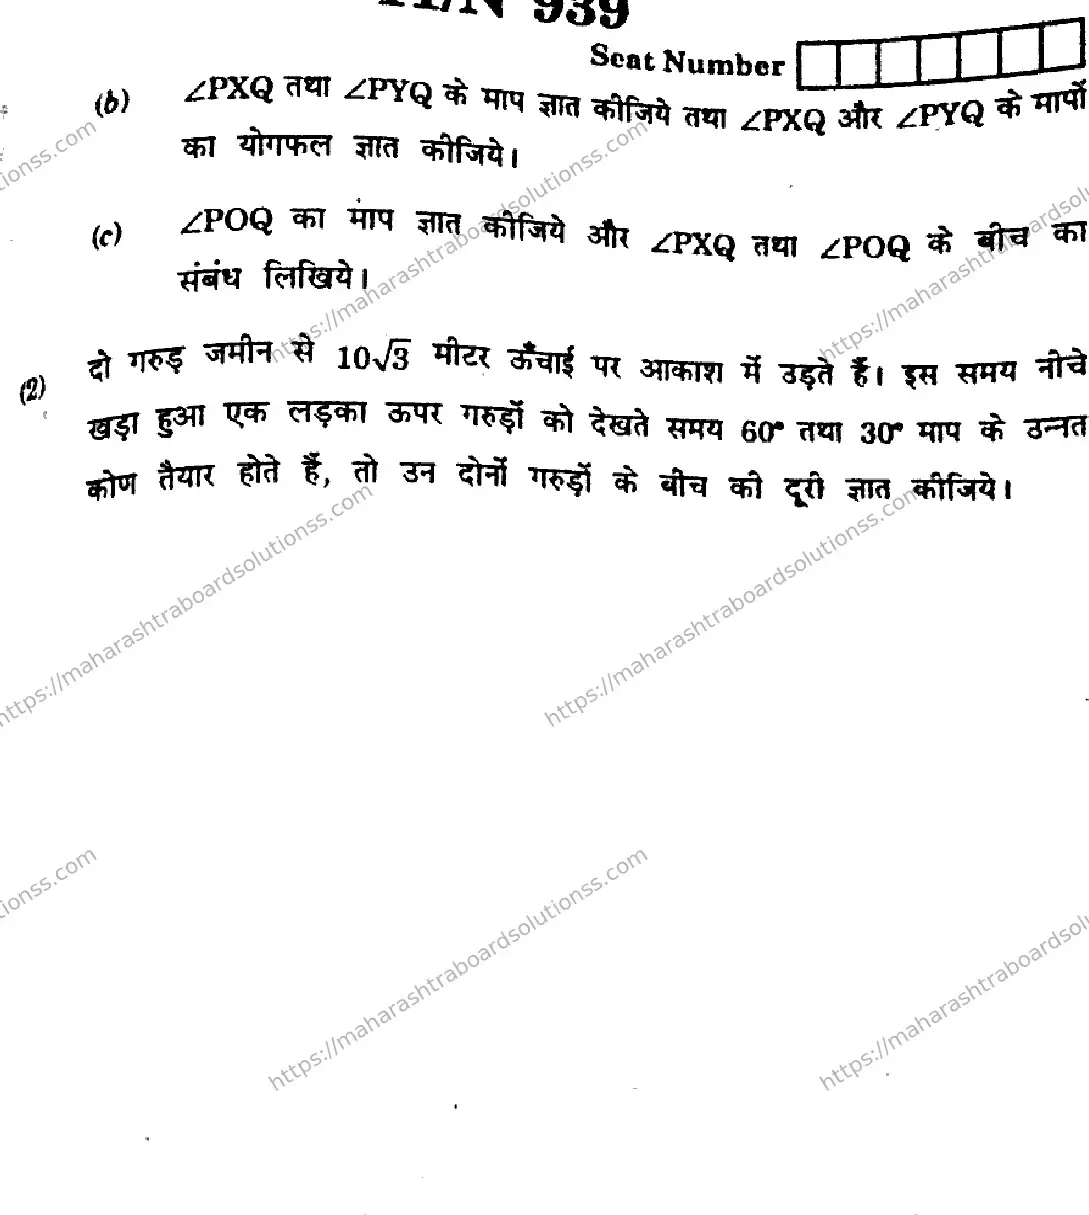 939
Seat Number
(b) ∠PXQ तथा ∠PYQ के माप ज्ञात कीजिये तथा ∠PXQ और ∠PYQ के मापों
का योगफल ज्ञात कीजिये।
(c) ∠POQ का माप ज्ञात कीजिये और ∠PXQ तथा ∠POQ के बीच का
संबंध लिखिये।
(2) दो गरुड़ जमीन से 10√3 मीटर ऊँचाई पर आकाश में उड़ते हैं। इस समय नीचे
खड़ा हुआ एक लड़का ऊपर गरुड़ों को देखते समय 60° तथा 30° माप के उन्नत
कोण तैयार होते हैं, तो उन दोनों गरुड़ों के बीच की दूरी ज्ञात कीजिये।
https://maharashtraboardsolutionss.com
https://maharashtraboardsolutionss.com
https://maharashtraboardsolutionss.com
https://maharashtraboardsolutionss.com